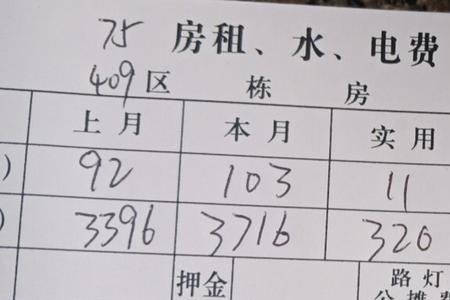 75 房租、水、电费
409 区 栋 房
上月 本月 实用
) 92 103 11
) 3396 3716 320
押金 路灯
公摊费